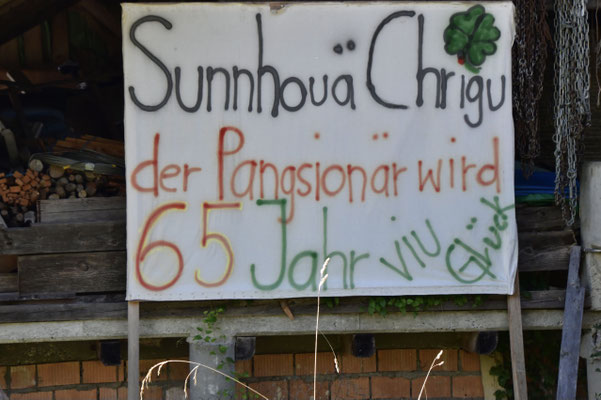 Sunnhouä Chrigu
der Pangsionär wird
65 Jahr viu Glück